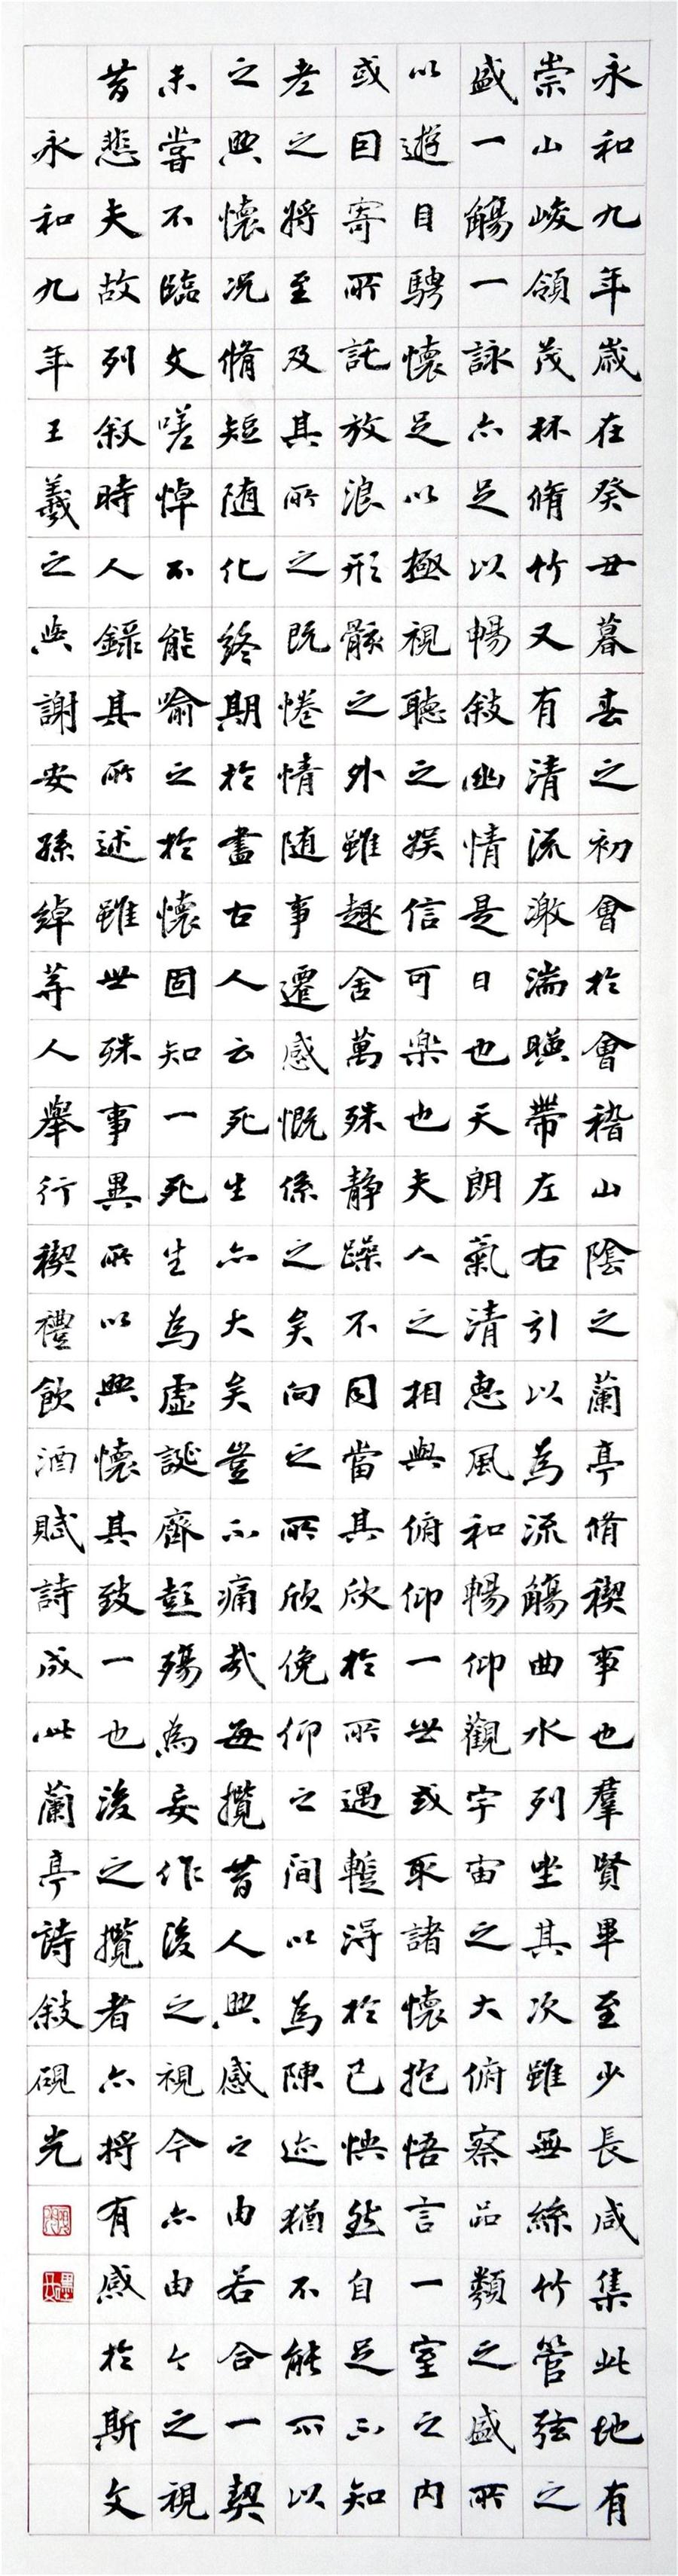 永和九年歲在癸丑暮春之初會於會稽山陰之蘭亭脩稧事也羣賢畢至少長咸集此地有
崇山峻領茂林脩竹又有清流激湍暎帶左右引以為流觴曲水列坐其次雖無絲竹管弦之
盛一觴一詠亦足以暢敘幽情是日也天朗氣清惠風和暢仰觀宇宙之大俯察品類之盛所
以遊目騁懷足以極視聽之娛信可樂也夫人之相與俯仰一世或取諸懷抱悟言一室之內
或因寄所託放浪形骸之外雖趣舍萬殊静躁不同當其欣於所遇暫得於己怏然自足不知
老之將至及其所之既惓情随事遷感慨係之矣向之所欣俛仰之間以為陳迹猶不能不以
之興懷況脩短随化終期於盡古人云死生亦大矣豈不痛哉每攬昔人興感之由若合一契
未嘗不臨文嗟悼不能喻之於懷固知一死生為虛誕齊彭殤為妄作後之視今亦由今之視
昔悲夫故列敘時人錄其所述雖世殊事異所以興懷其致一也後之攬者亦將有感於斯文
永和九年王羲之與謝安孫綽等人舉行稧禮飲酒賦詩成此蘭亭詩敘硯光